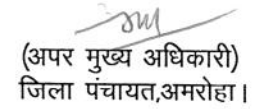 (अपर मुख्य अधिकारी)
जिला पंचायत,अमरोहा।